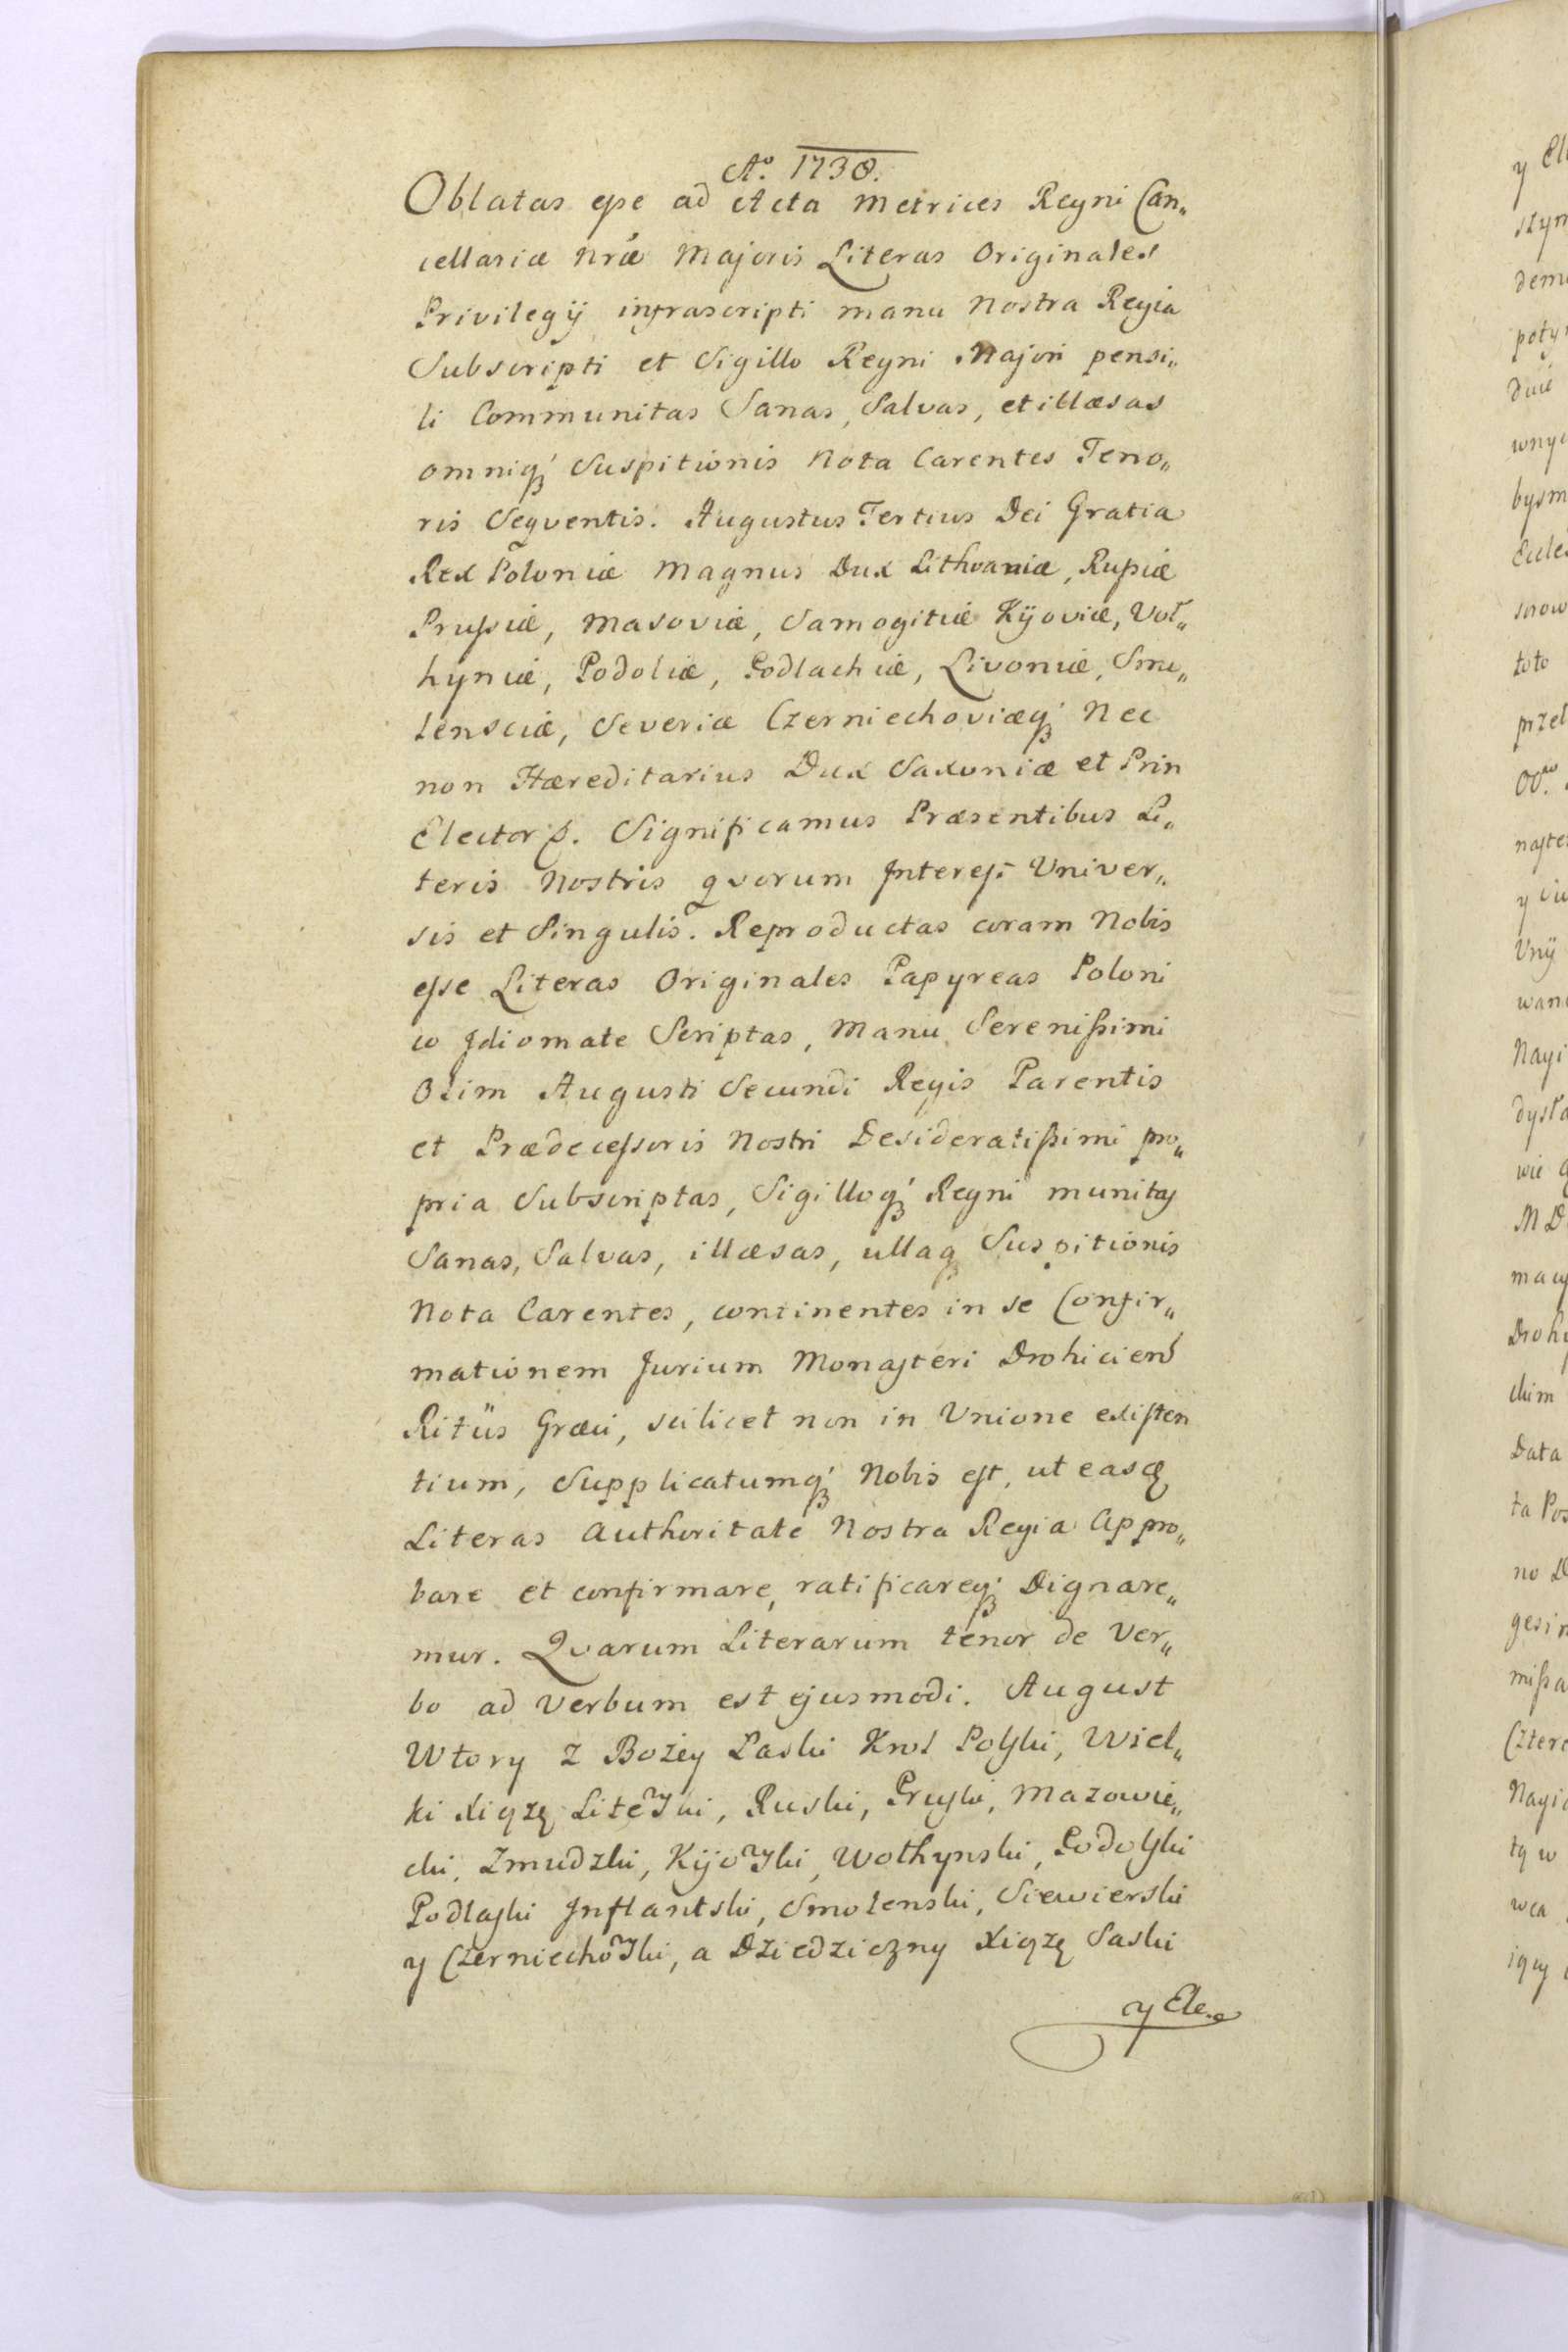 Aº. 1738.
Oblatas esse ad Acta Metrices Regni Can„
cellariæ nræ Majoris Literas Originales
Privilegij infrascripti manu Nostra Regia
Subscripti et Sigillo Regni Majori pensi„
li Communitas Sanas, Salvas, et illæsas
omniq́ Suspitionis Nota Carentes Teno„
ris Seqventis. Augustus Tertius Dei Gratia
Rex Poloniæ Magnus Dux Lithvaniæ, Rußiæ
Prußiæ, Masoviæ, Samogitiæ Kijoviæ, Vol„
hyniæ, Podoliæ, Podlachiæ, Livoniæ, Smo„
lensciæ, Severiæ Czerniechoviæq́ Nec
non Hæreditarius Dux Saxoniæ et Prin
Elector p. Significamus Præsentibus Li„
teris Nostris qvorum Interest Univer„
sis et Singulis. Reproductas coram Nobis
esse Literas Originales Papyreas Poloni
co Idiomate Scriptas, Manu Serenißimi
Olim Augusti Secundi Regis Parentis
et Prædecessoris Nostri Desideratißimi pro„
pria Subscriptas, Sigilloq́ Regni munitas
Sanas, Salvas, illæsas, ullaq Suspitionis
Nota Carentes, continentes in se Confir„
mationem Jurium Monasteri Drohiciens
Ritûs Græci, scilicet non in Unione existen
tium, Supplicatumq́ Nobis est, ut easq
Literas Authoritate Nostra Regia Appro„
bare et confirmare, ratificareq́ Dignare„
mur. Qvarum Literarum tenor de Ver„
bo ad Verbum est ejusmodi. August
Wtory z Bożey Laski Krol Polski, Wiel„
ki Xiąze Litewski, Ruski, Pruski, Mazowie„
cki, Zmudzki, Kijowski, Wolhynski, Podolski
Podlaski Inflantski, Smolenski, Siewierski
y Czerniechowski, a Dziedziczny Xiąze Saski
y Ele.